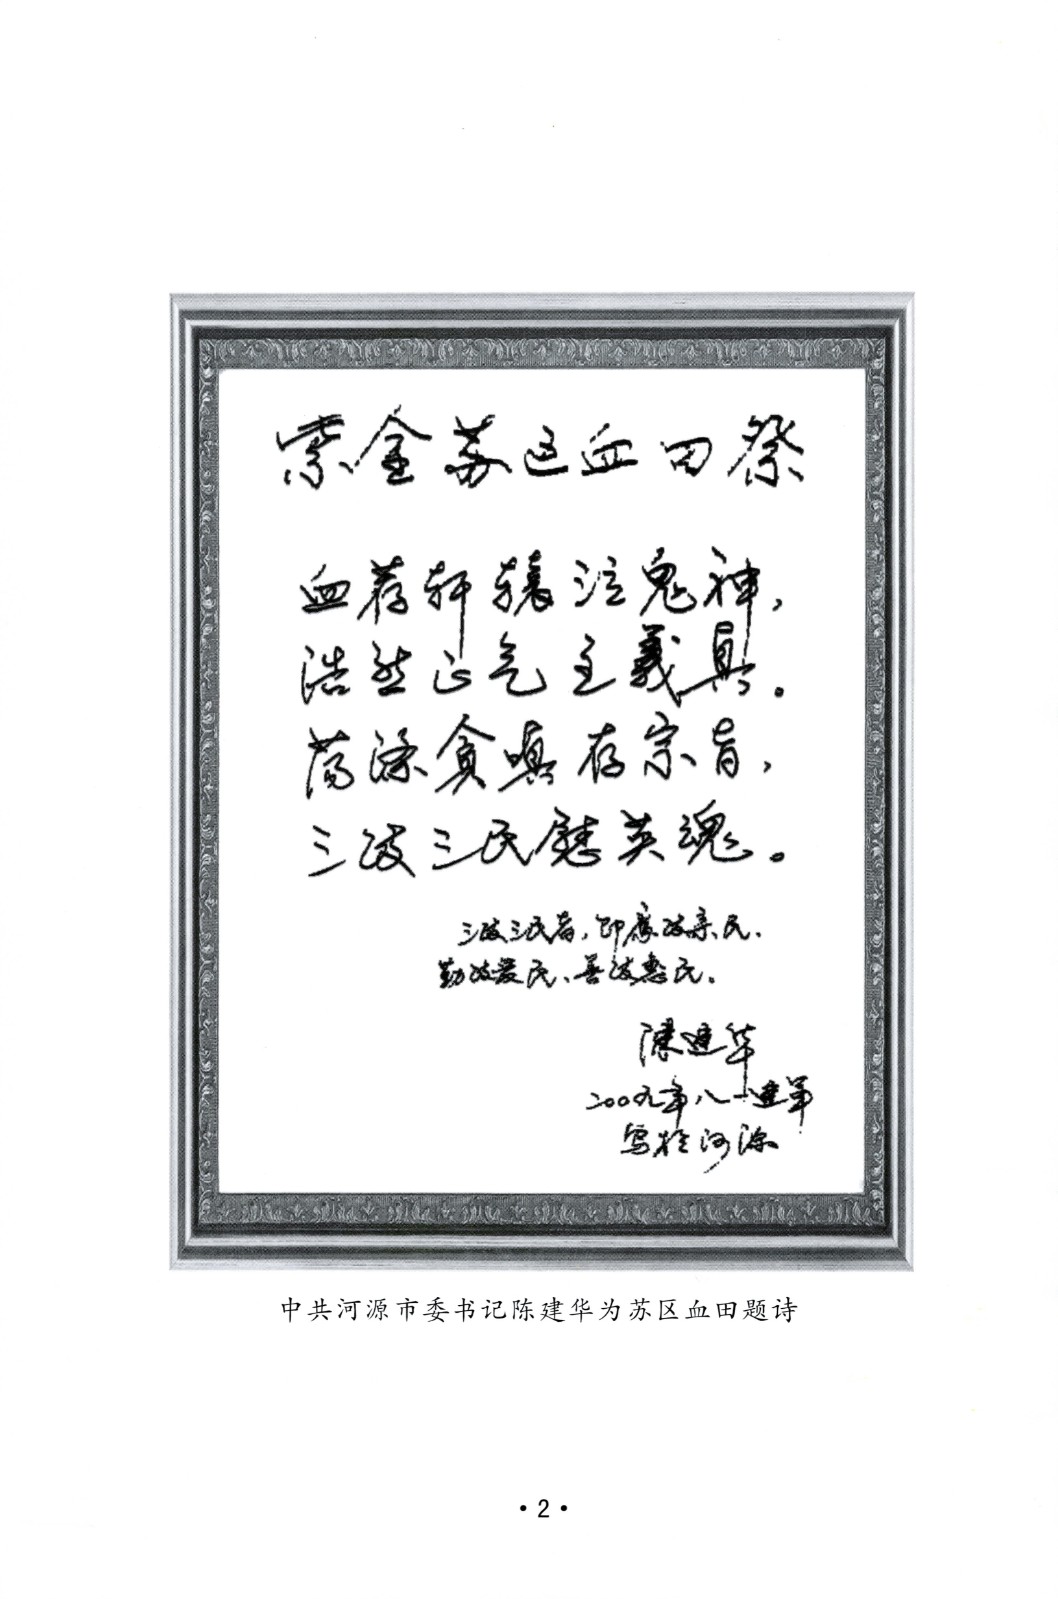 紫金苏区血田祭
血荐轩辕泣鬼神，
浩然正气主義真。
荡涤贪嗔存宗旨，
三政三民慰英魂。
三政三民者，即廉政亲民、
勤政爱民、善政惠民。
陈建华
二〇〇九年八一建军
写于河源
中共河源市委书记陈建华为苏区血田题诗
·2·